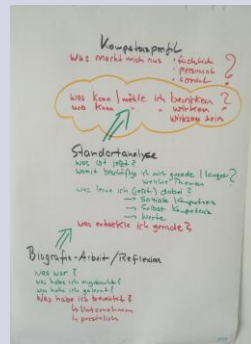 Kompetenzprofil
Was macht mich aus ?
· fachlich
· personal
· sozial
was kann / möchte ich bewirken ?
was kann " " wirken
wirksam sein
Standortanalyse
was ist jetzt ?
womit beschäftige ich mich gerade / länger ?
welche Themen
was lerne ich (jetzt) dabei ?
→ Soziale Kompetenz
→ Selbst Kompetenz
→ Werte
was entwickle ich gerade ?
Biografie-Arbeit / Reflexion
was war ?
was habe ich
was habe ich gelernt ?
Was habe ich bewirkt ?
↳ Unternehmen
↳ persönlich